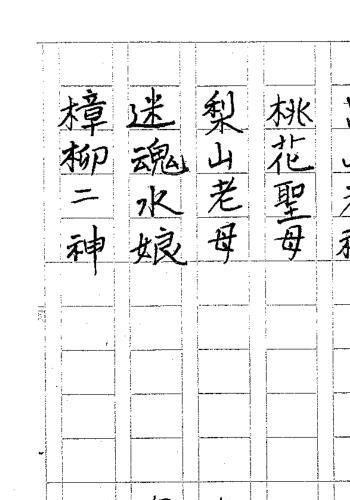 桃花聖母
梨山老母
迷魂水娘
樟柳二神